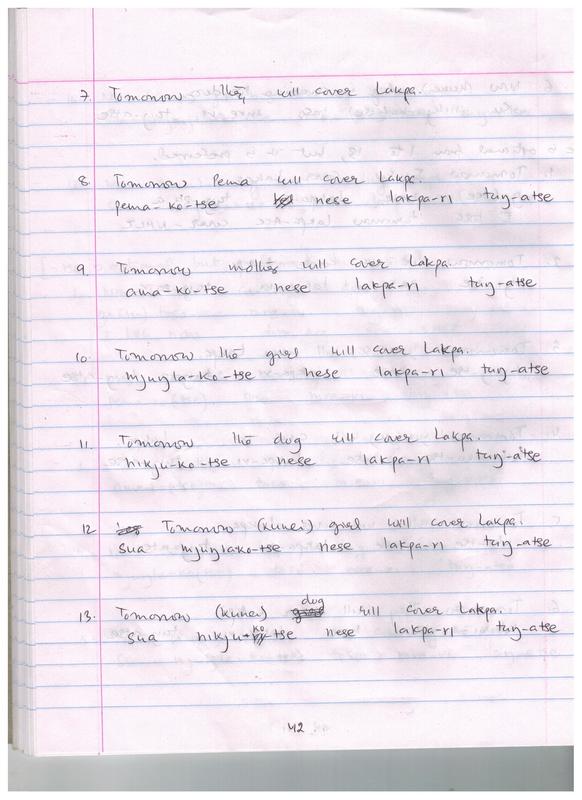 7. Tomorrow they will cover Lakpa.
8. Tomorrow Pema will cover Lakpa.
pema-ko-tse nese lakpa-ri tuŋ-atse
9. Tomorrow mother will cover Lakpa.
ama-ko-tse nese lakpa-ri tuŋ-atse
10. Tomorrow the girl will cover Lakpa.
mjuŋla-ko-tse nese lakpa-ri tuŋ-atse
11. Tomorrow the dog will cover Lakpa.
hikju-ko-tse nese lakpa-ri tuŋ-atse
12 Tomorrow (kunei) girl will cover Lakpa.
sua mjuŋlako-tse nese lakpa-ri tuŋ-atse
13. Tomorrow (kunei) dog will cover Lakpa.
sua hikju-ko-tse nese lakpa-ri tuŋ-atse
42